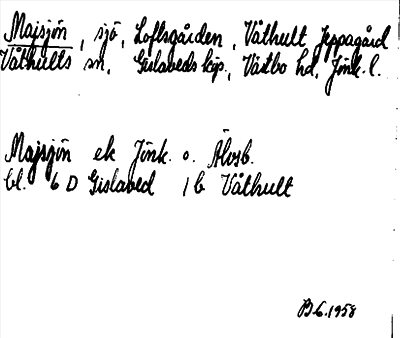 Majsjön, sjö, Loftsgården, Våthult Jeppagård
Våthults sn, Gislaveds köp., Västbo hd, Jönk. l.
Majsjön ek Jönk. o. Älvsb.
bl. 6 D Gislaved 1 b Våthult
B 6.1958